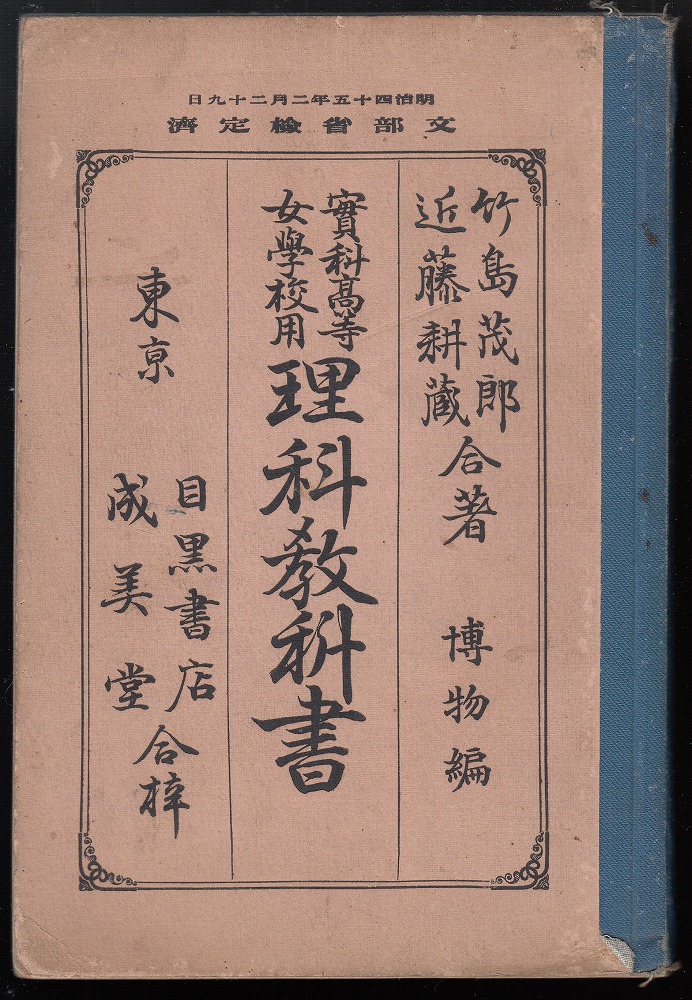 明治四十五年二月二十九日
文部省檢定濟
竹島茂郎
近藤耕蔵
合著
博物編
實科高等
女學校用
理科教科書
東京
目黒書店
成美堂
合梓